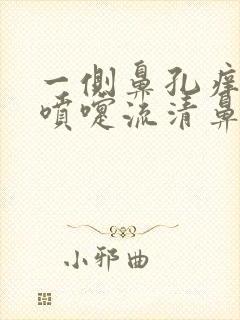 一側鼻孔痒
噴嚏流清鼻
小邪曲